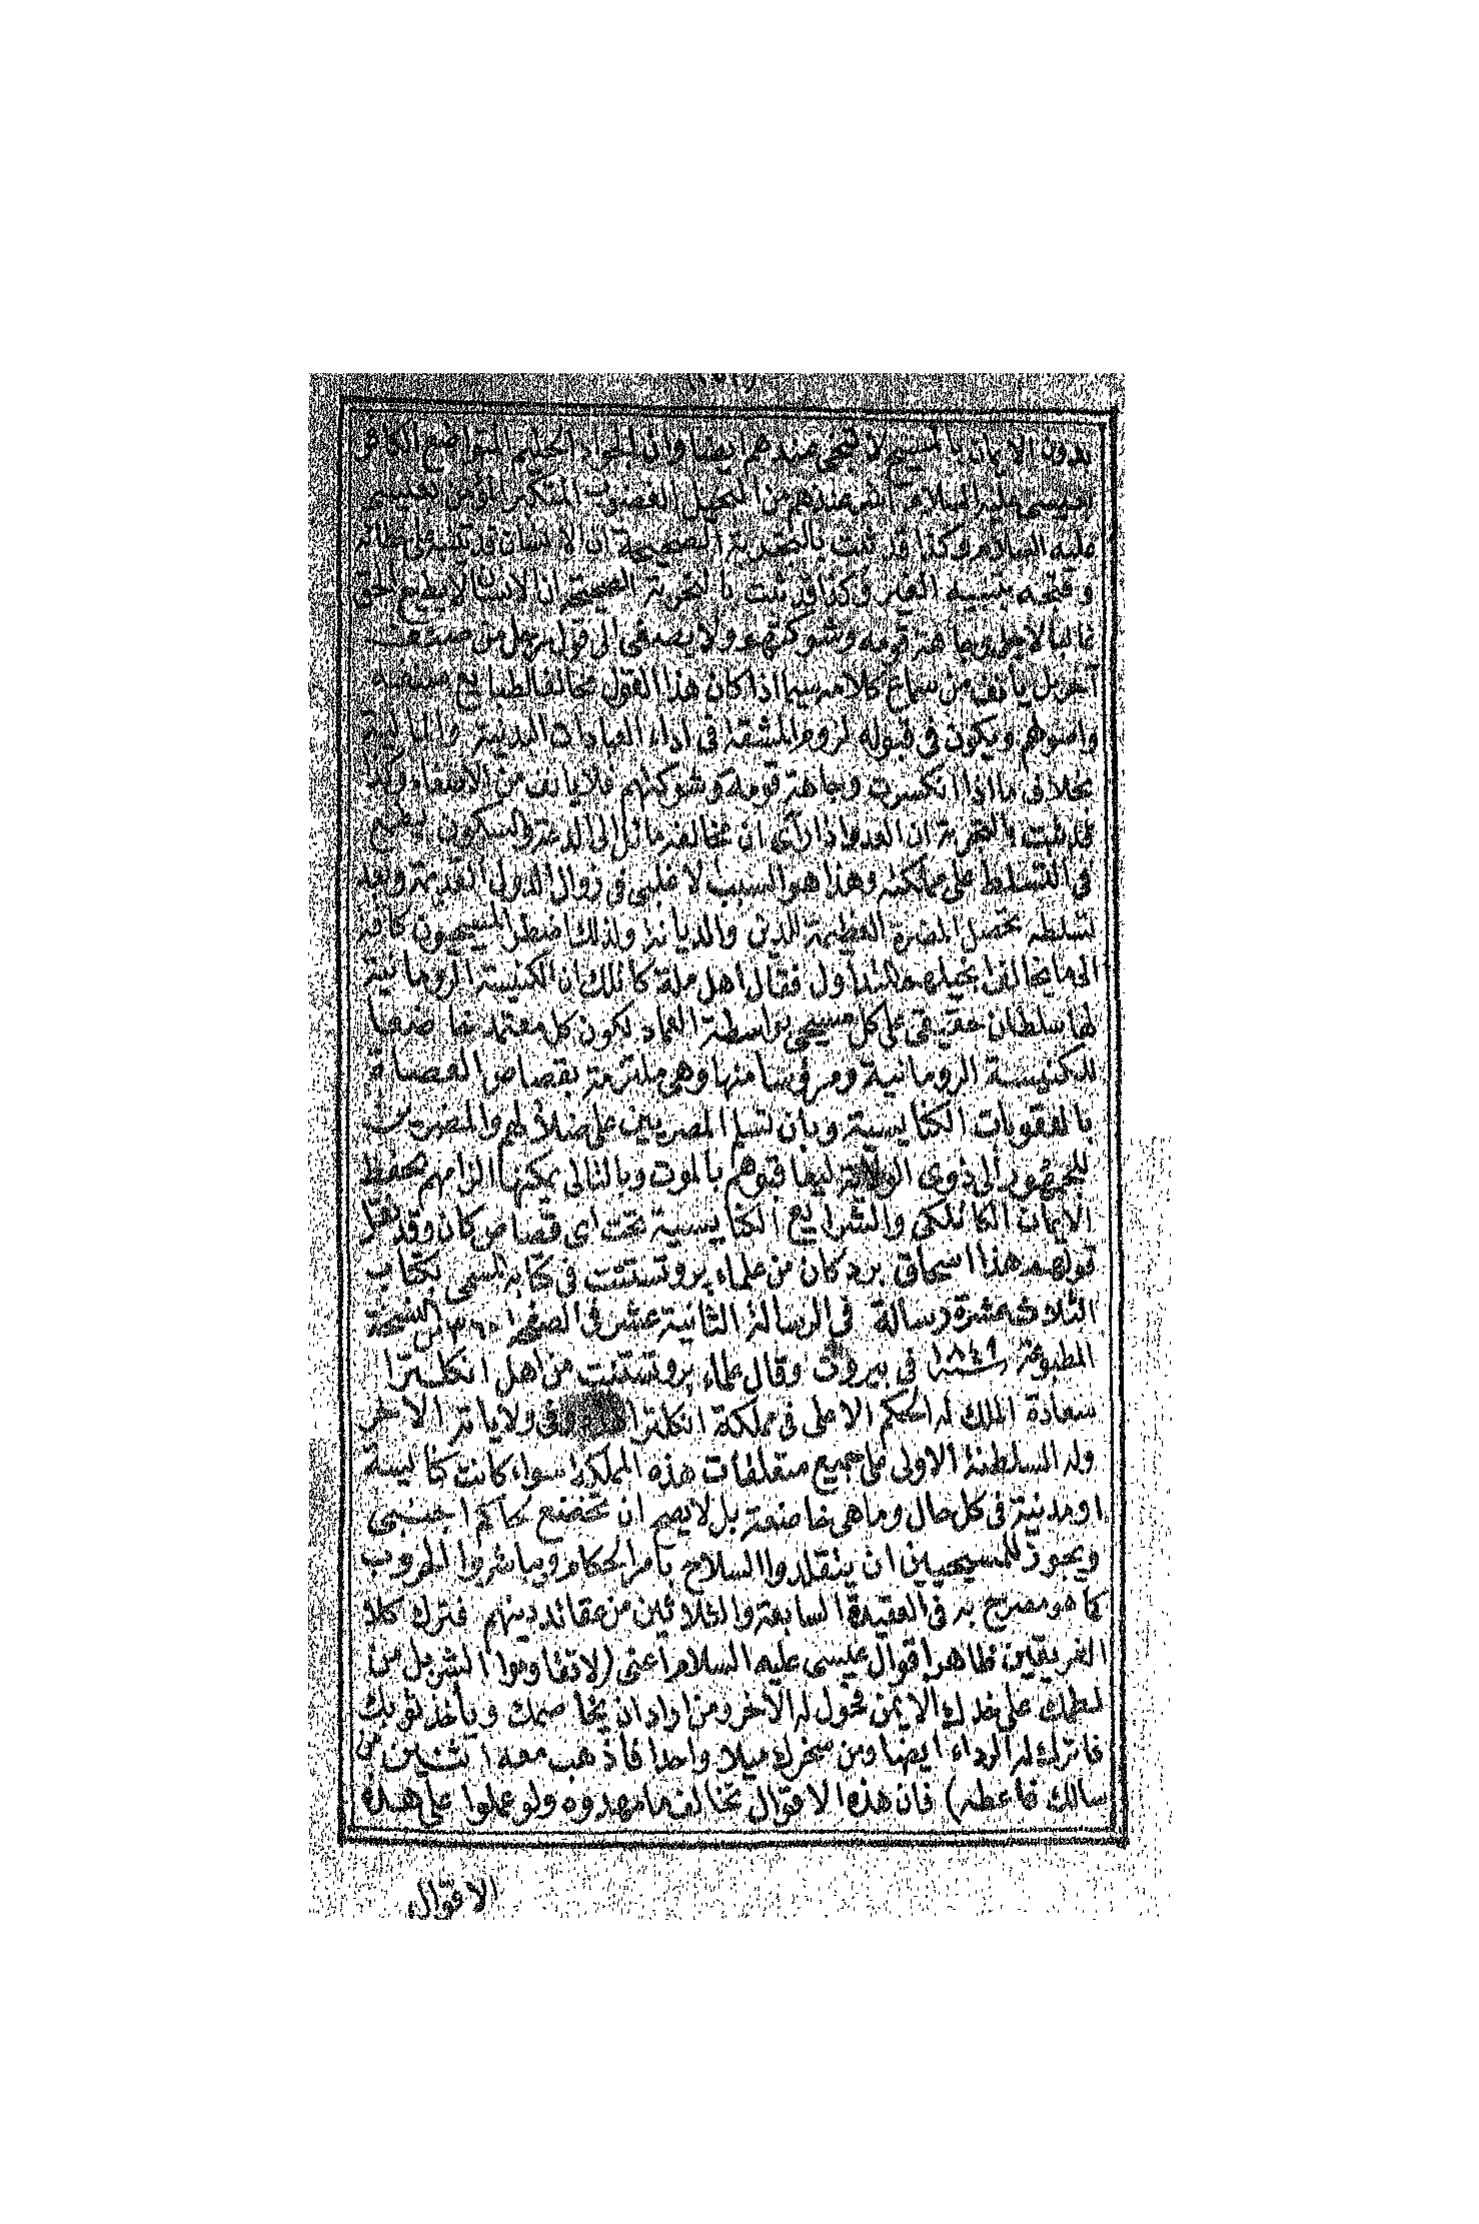 بدون الايمان بالمسيح لا تنجى عندهم ايضا وان الجواد الحليم المتواضع الكافر
بعيسى عليه السلام اشر عندهم من البخيل الغضوب المتكبر المؤمن بعيسى
عليه السلام وكذا قد ثبت بالتجربة الصحيحة ان الانسان قد يتنبه على خطائه
وقبحه بتنبيه الغير وكذا قد ثبت بالتجربة الصحيحة ان الانسان لا يطيع الحق
غالبا لاجل وجاهة قومه وشوكتهم ولا يصغى الى قول رجل من صنف
آخر بل يأنف من سماع كلامه سيما اذا كان هذا القول مخالفا لطبايع صنفه
واصولهم ويكون فى قبوله لزوم المشقة فى اداء العبادات البدنية والمالية
بخلاف ما اذا انكسرت وجاهة قومه وشوكتهم فلا يأنف من الاصغاء وكذا
قد ثبت بالتجربة ان العدو اذا رأى ان مخالفه مائل الى الدعة والسكون يطمع
فى التسلط على مملكته وهذا هو السبب الاغلبى فى زوال الدول القديمة وبعد
تسلطه تحصل المضرة العظيمة للدين والديانة ولذلك اضطر المسيحيون كافة
الى ما يخالف انجيلهم المتداول فقال اهل ملة كاتلك ان الكنيسة الرومانية
لها سلطان حقيقى على كل مسيحى بواسطة العماد لكون كل معتمد خاضعا
للكنيسة الرومانية ومرؤسا منها وهى ملتزمة بقصاص العصاة
بالعقوبات الكنايسية وبان تسلم المصريين على ضلالهم والمضرين
للجمهور الى ذوى الولاية ليعاقبوهم بالموت وبالتالى يمكنها الزامهم بحفظ
الايمان الكاتلكى والشرايع الكنايسية تحت اى قصاص كان وقد نقل
قولهم هذا اسحاق برد كان من علماء بروتستنت فى كتابه المسمى بكتاب
الثلاث عشرة رسالة فى الرسالة الثانية عشر فى الصفحة ٣٦٠ من النسخة
المطبوعة سنة ١٨٤٩ فى بيروت وقال علماء بروتستنت من اهل انكلترا
سعادة الملك له الحكم الاعلى فى مملكة انكلترا وفى ولاياته الاخر
وله السلطنة الاولى على جميع متعلقات هذه المملكة سواء كانت كنايسية
او مدنية فى كل حال وما هى خاضعة بل لا يصح ان تخضع لحاكم اجنبى
ويجوز للمسيحيين ان يتقلدوا السلاح بامر الحكام ويباشروا الحروب
كما هو مصرح به فى العقيدة السابعة والثلاثين من عقائد دينهم فترك كلا
الفريقين ظاهر اقوال عيسى عليه السلام اعنى (لا تقاوموا الشر بل من
لطمك على خدك الايمن فحول له الآخر ومن اراد ان يخاصمك ويأخذ ثوبك
فاترك له الرداء ايضا ومن سخرك ميلا واحدا فاذهب معه اثنين من
سالك فاعطه) فان هذه الاقوال تخالف ما مهدوه ولو عملوا على هذه
الاقوال